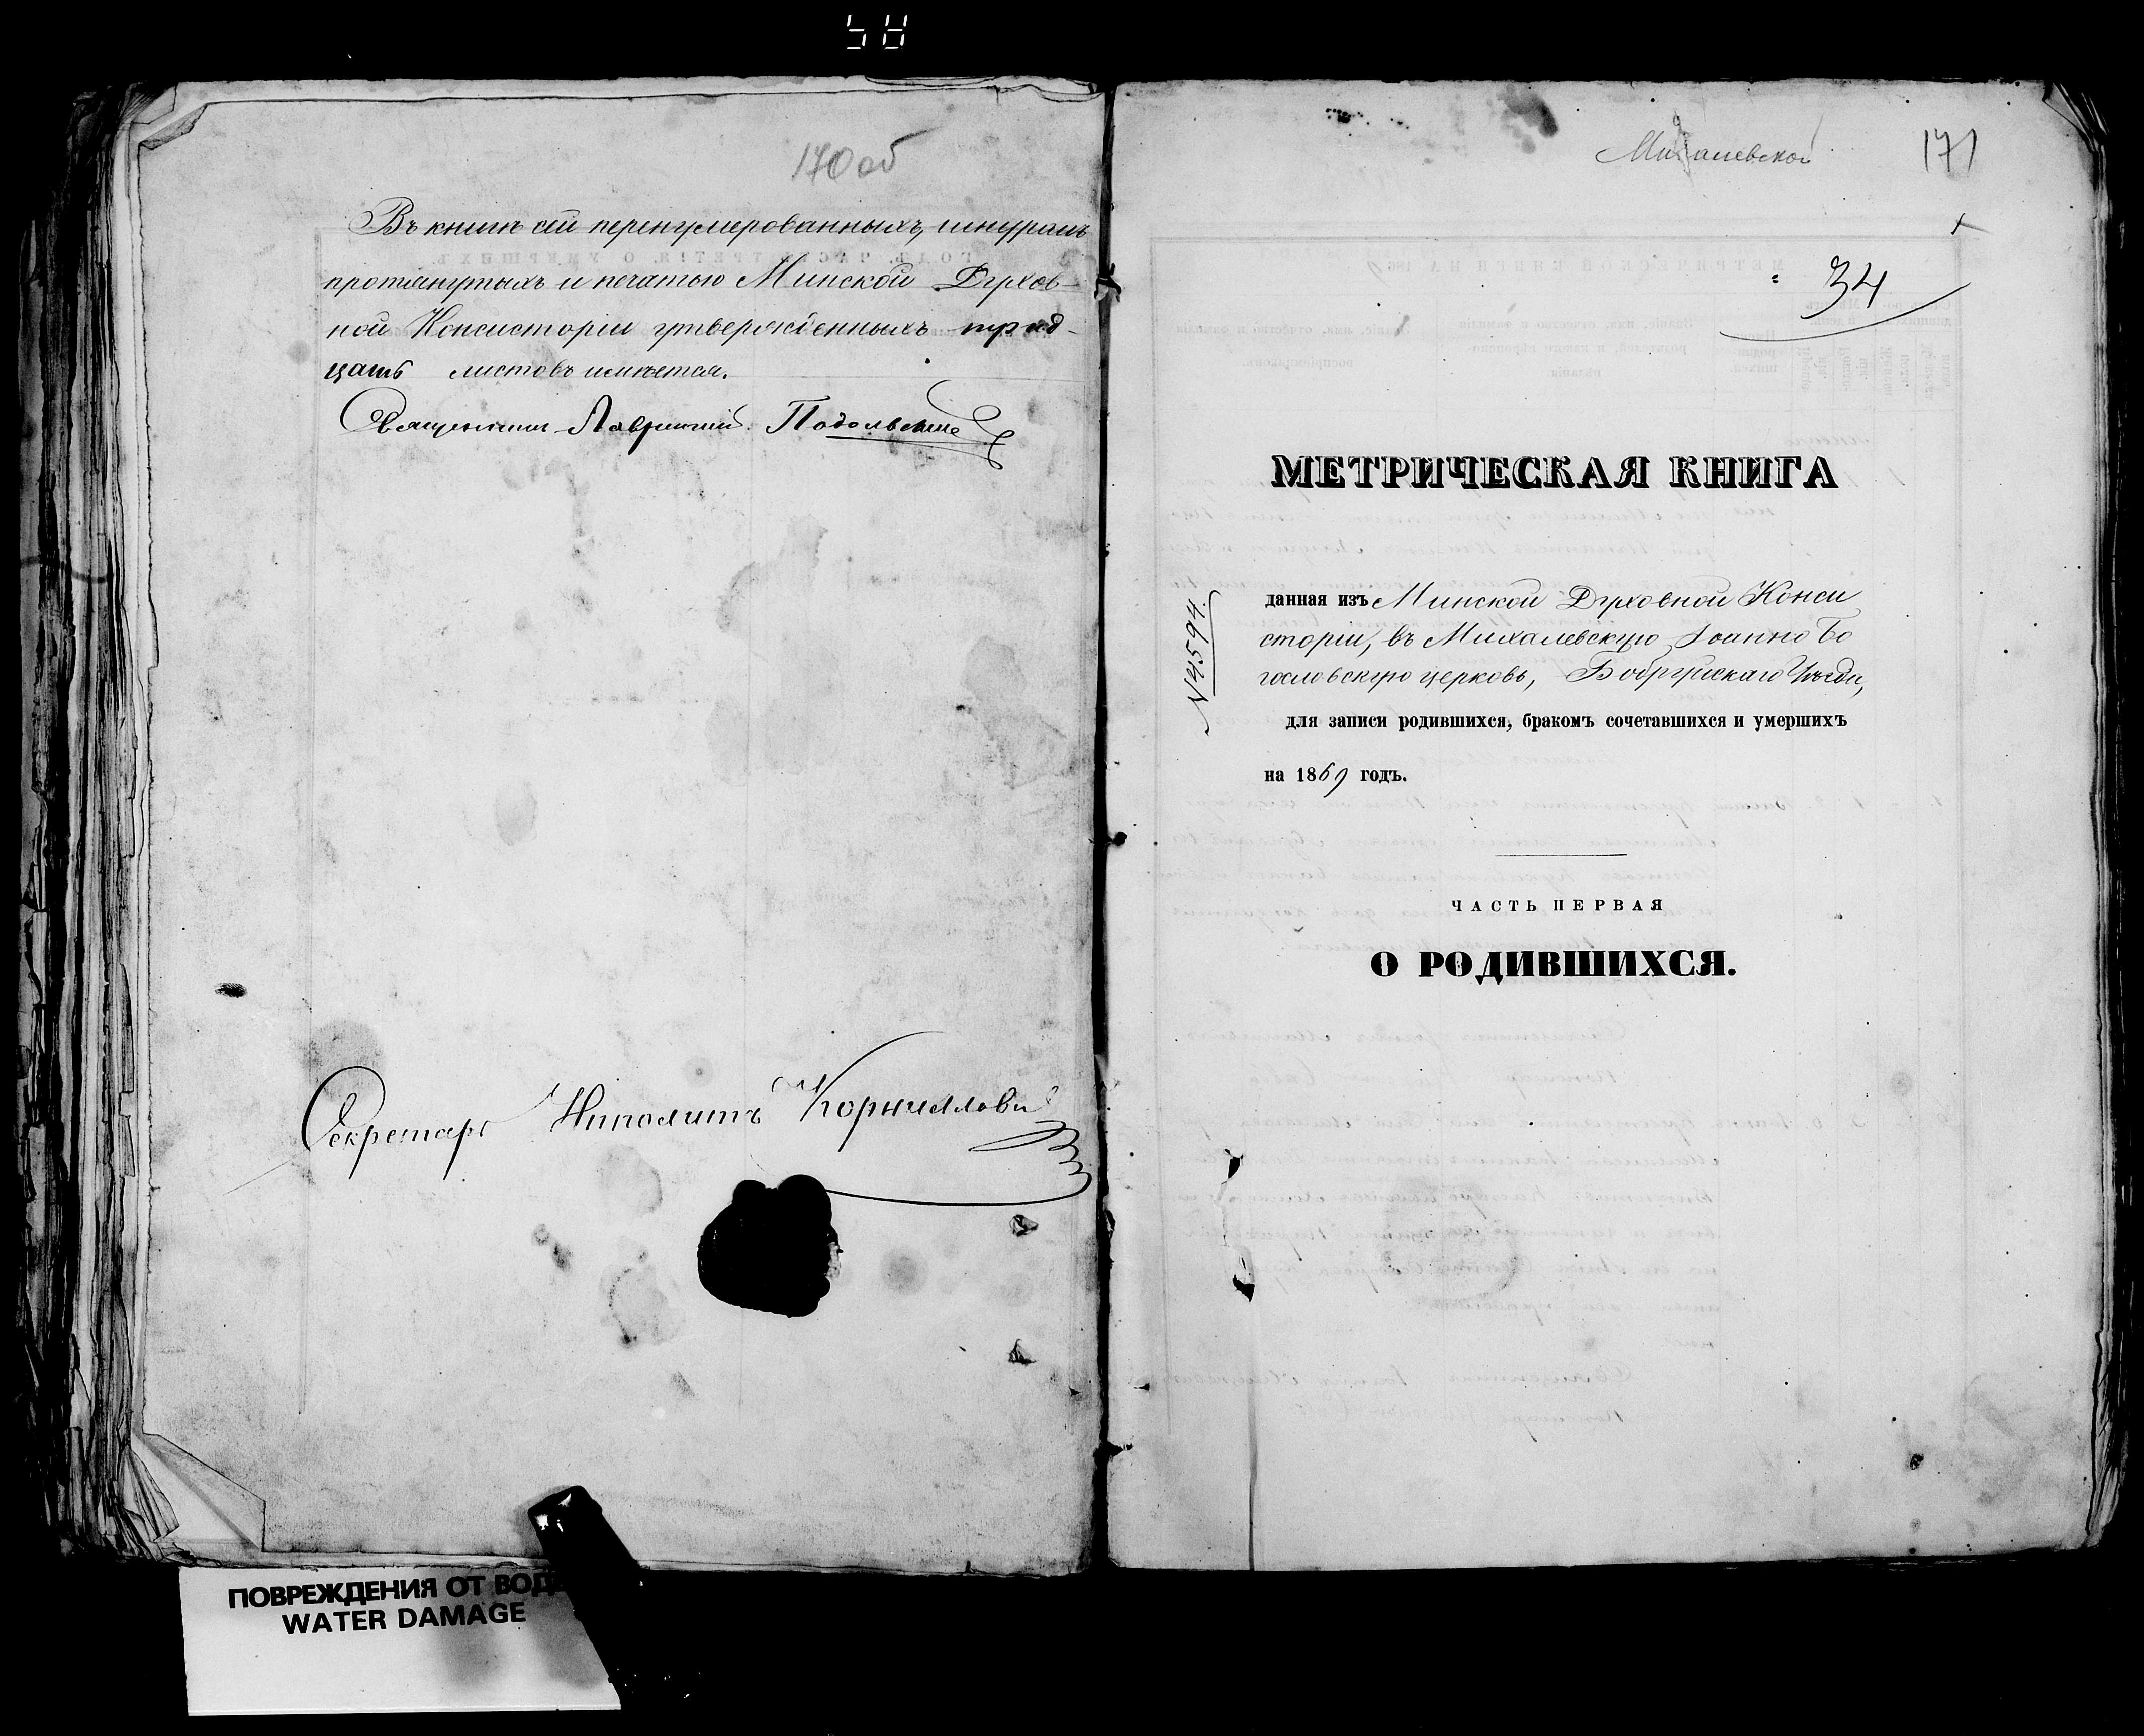 170 об
Въ книгѣ сей перенумерованныхъ, шнуромъ
протянутыхъ и печатью Минской Духов-
ной Консисторіи утвержденныхъ трид-
цать листовъ имѣется.
Священникъ Подольскій
Секретарь Ипполитъ Корниллови
Михалевской
171
34
МЕТРИЧЕСКАЯ КНИГА
N 4594.
данная изъ Минской Духовной Конси
сторіи, въ Михалевскую Іоанно Бо
гословскую церковь, Бобруйскаго Уѣзда,
для записи родившихся, бракомъ сочетавшихся и умершихъ
на 1869 годъ.
ЧАСТЬ ПЕРВАЯ
О РОДИВШИХСЯ.
ПОВРЕЖДЕНИЯ ОТ ВОД
WATER DAMAGE